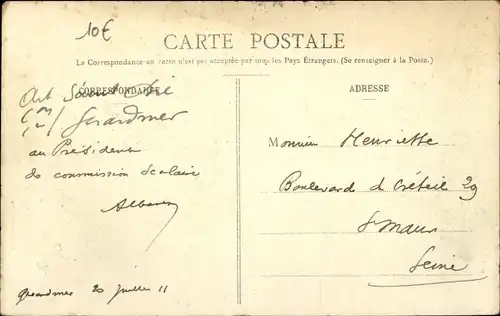 10€
CARTE POSTALE
La Correspondance au recto n'est pas acceptée par tous les Pays Étrangers. (Se renseigner à la Poste.)
CORRESPONDANCE
Gerardmer
au Président
de commission scolaire
gerardmer 20 juillet 11
ADRESSE
Monsieur Henriette
Boulevard d Créteil 29
St Maur
Seine